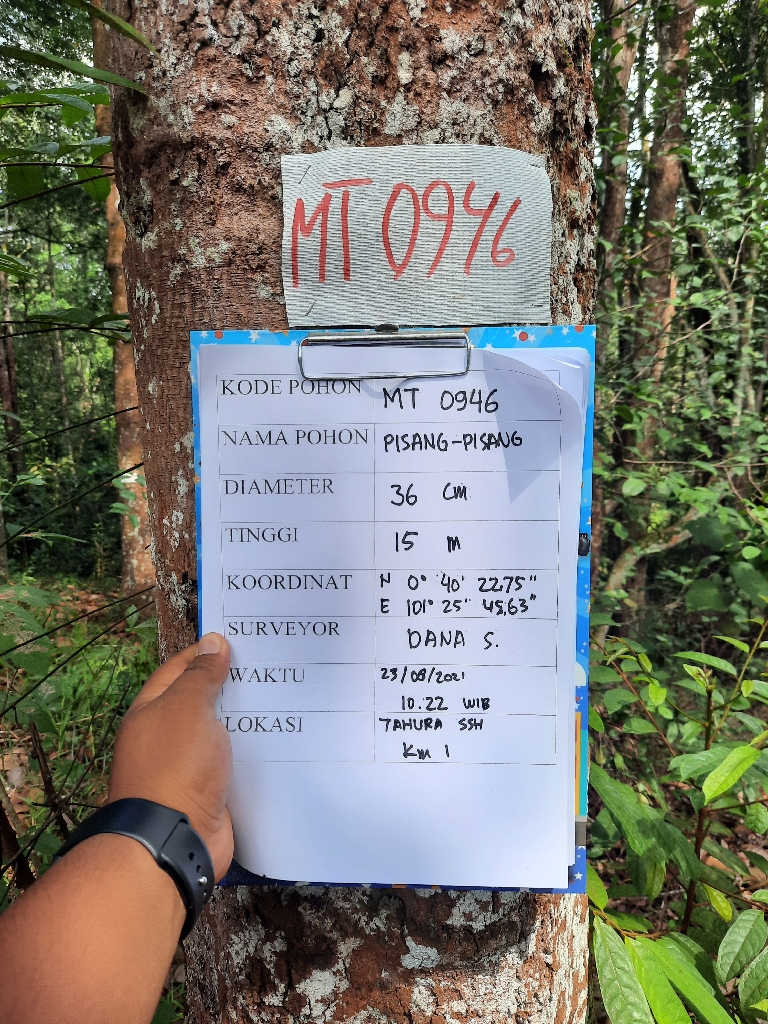 MT 0946
KODE POHON MT 0946
NAMA POHON PISANG-PISANG
DIAMETER 36 cm
TINGGI 15 m
KOORDINAT N 0° 40' 22,75"
E 101° 25" 45,63"
SURVEYOR DANA S.
WAKTU 23/08/2021
10.22 WIB
LOKASI TAHURA SSH
Km 1